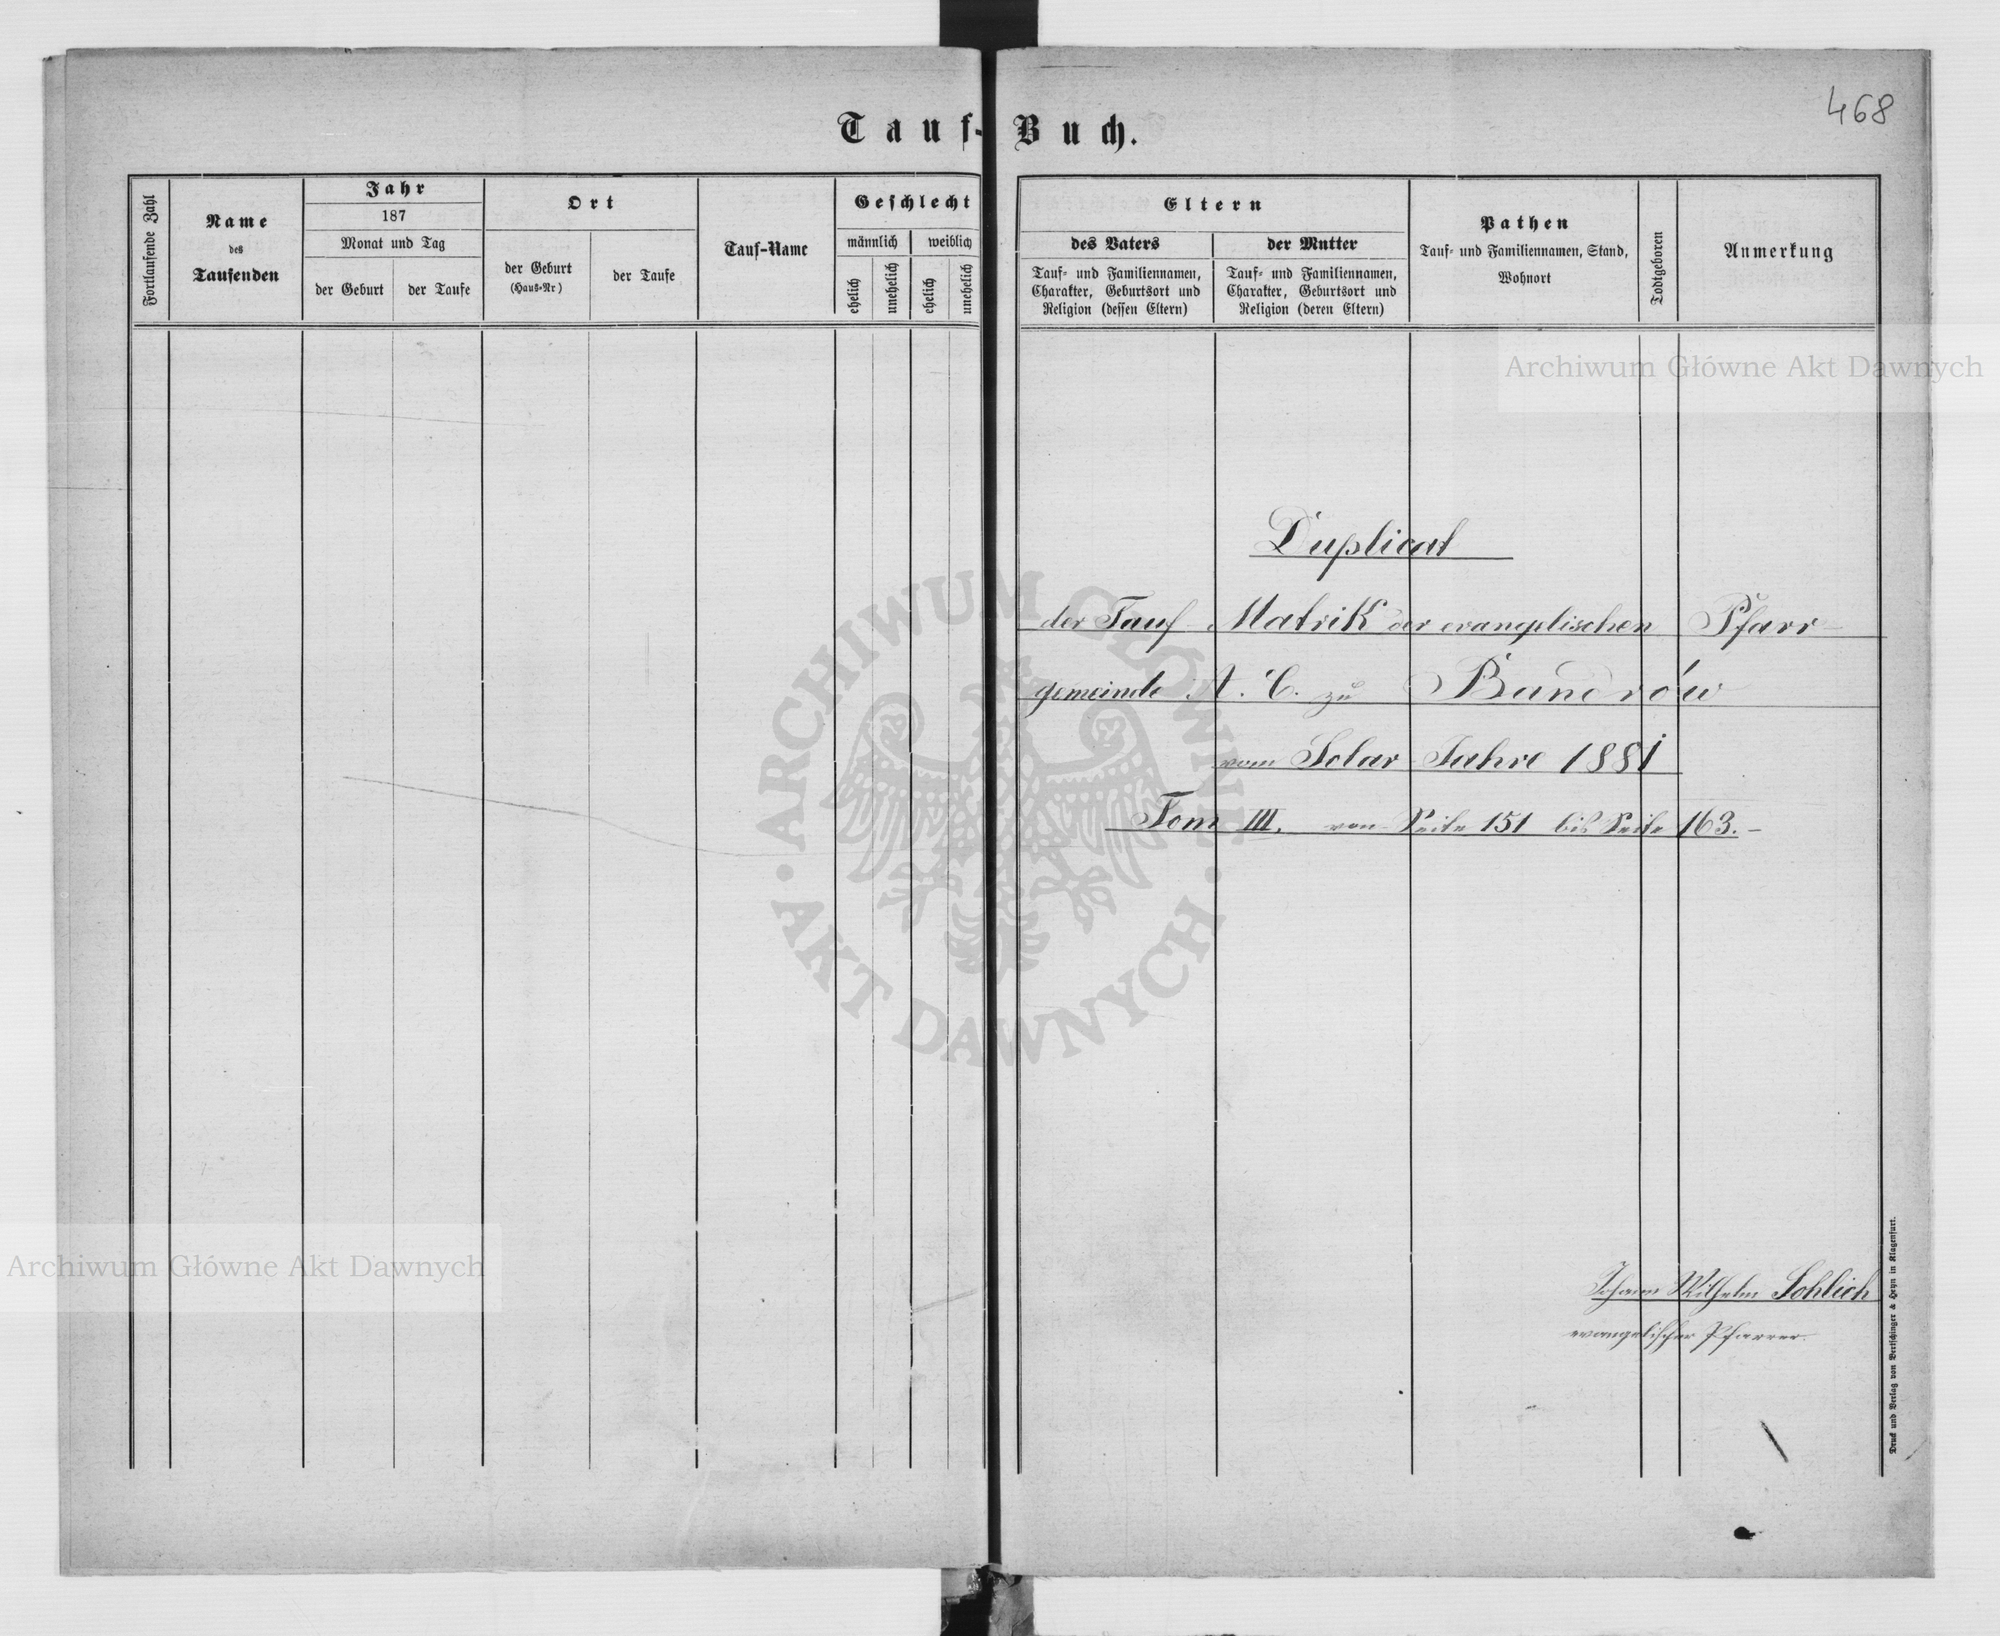 468
Tauf-Buch.
Fortlaufende Zahl
Name
des
Taufenden
Jahr
187
Monat und Tag
der Geburt
der Taufe
Ort
der Geburt
(Haus-Nr)
der Taufe
Tauf-Name
Geschlecht
männlich
weiblich
ehelich
unehelich
ehelich
unehelich
Eltern
des Vaters
Tauf- und Familiennamen,
Charakter, Geburtsort und
Religion (dessen Eltern)
der Mutter
Tauf- und Familiennamen,
Charakter, Geburtsort und
Religion (deren Eltern)
Pathen
Tauf- und Familiennamen, Stand,
Wohnort
Todtgeboren
Anmerkung
Archiwum Główne Akt Dawnych
Duplicat
der Tauf-Matrik der evangelischen Pfarr-
gemeinde A. C. zu Bandrów
vom Solar-Jahre 1881
Tom III. von Seite 151 bis Seite 163.-
ARCHIWUM GŁÓWNE · AKT DAWNYCH ·
Archiwum Główne Akt Dawnych
Johann Wilhelm Schlich
evangelischer Pfarrer.
Druck und Verlag von Bertschinger & Heyn in Klagenfurt.